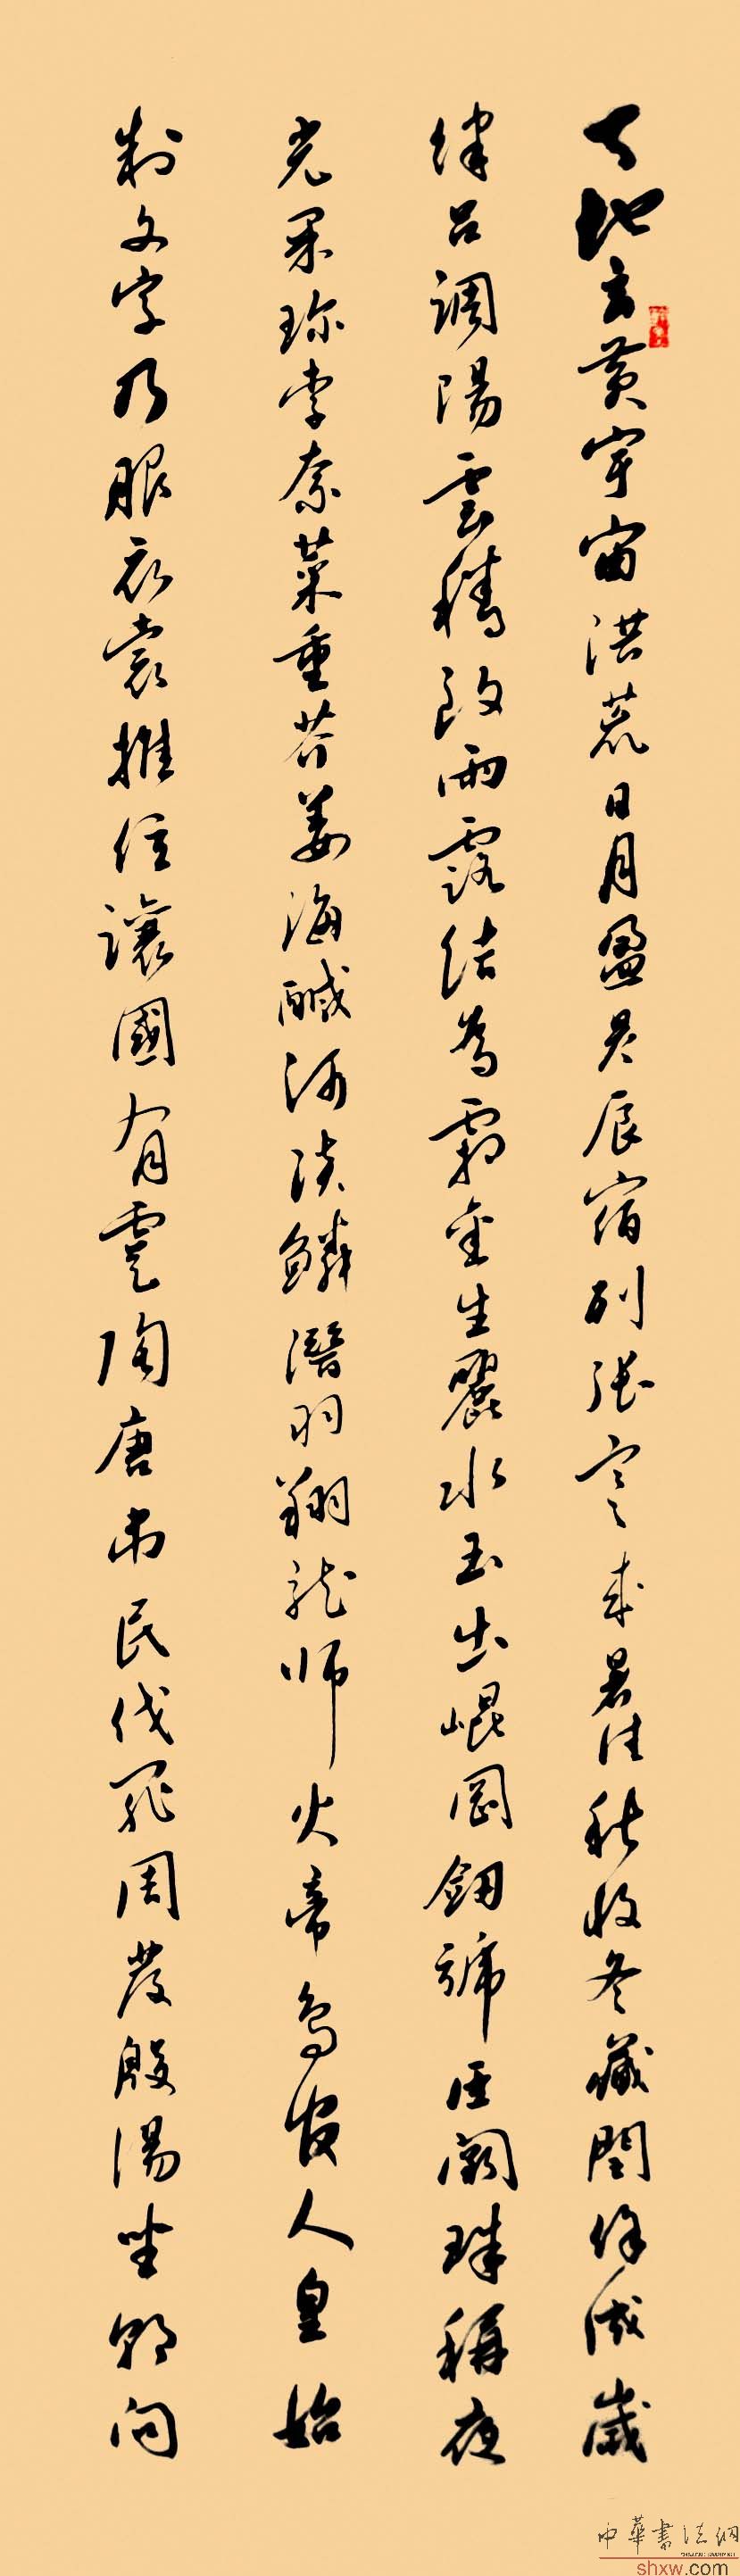 天地玄黄宇宙洪荒日月盈昃辰宿列张寒来暑往秋收冬藏閏余成歲
律吕調陽雲騰致雨露结為霜金生麗水玉出崐岡釼號巨阙珠稱夜
光果珍李柰菜重芥姜海醎河淡鱗潛羽翔龙师火帝鸟官人皇始
制文字乃服衣裳推位讓國有虞陶唐吊民伐罪周发殷湯坐朝问
中華書法網
shxw.com